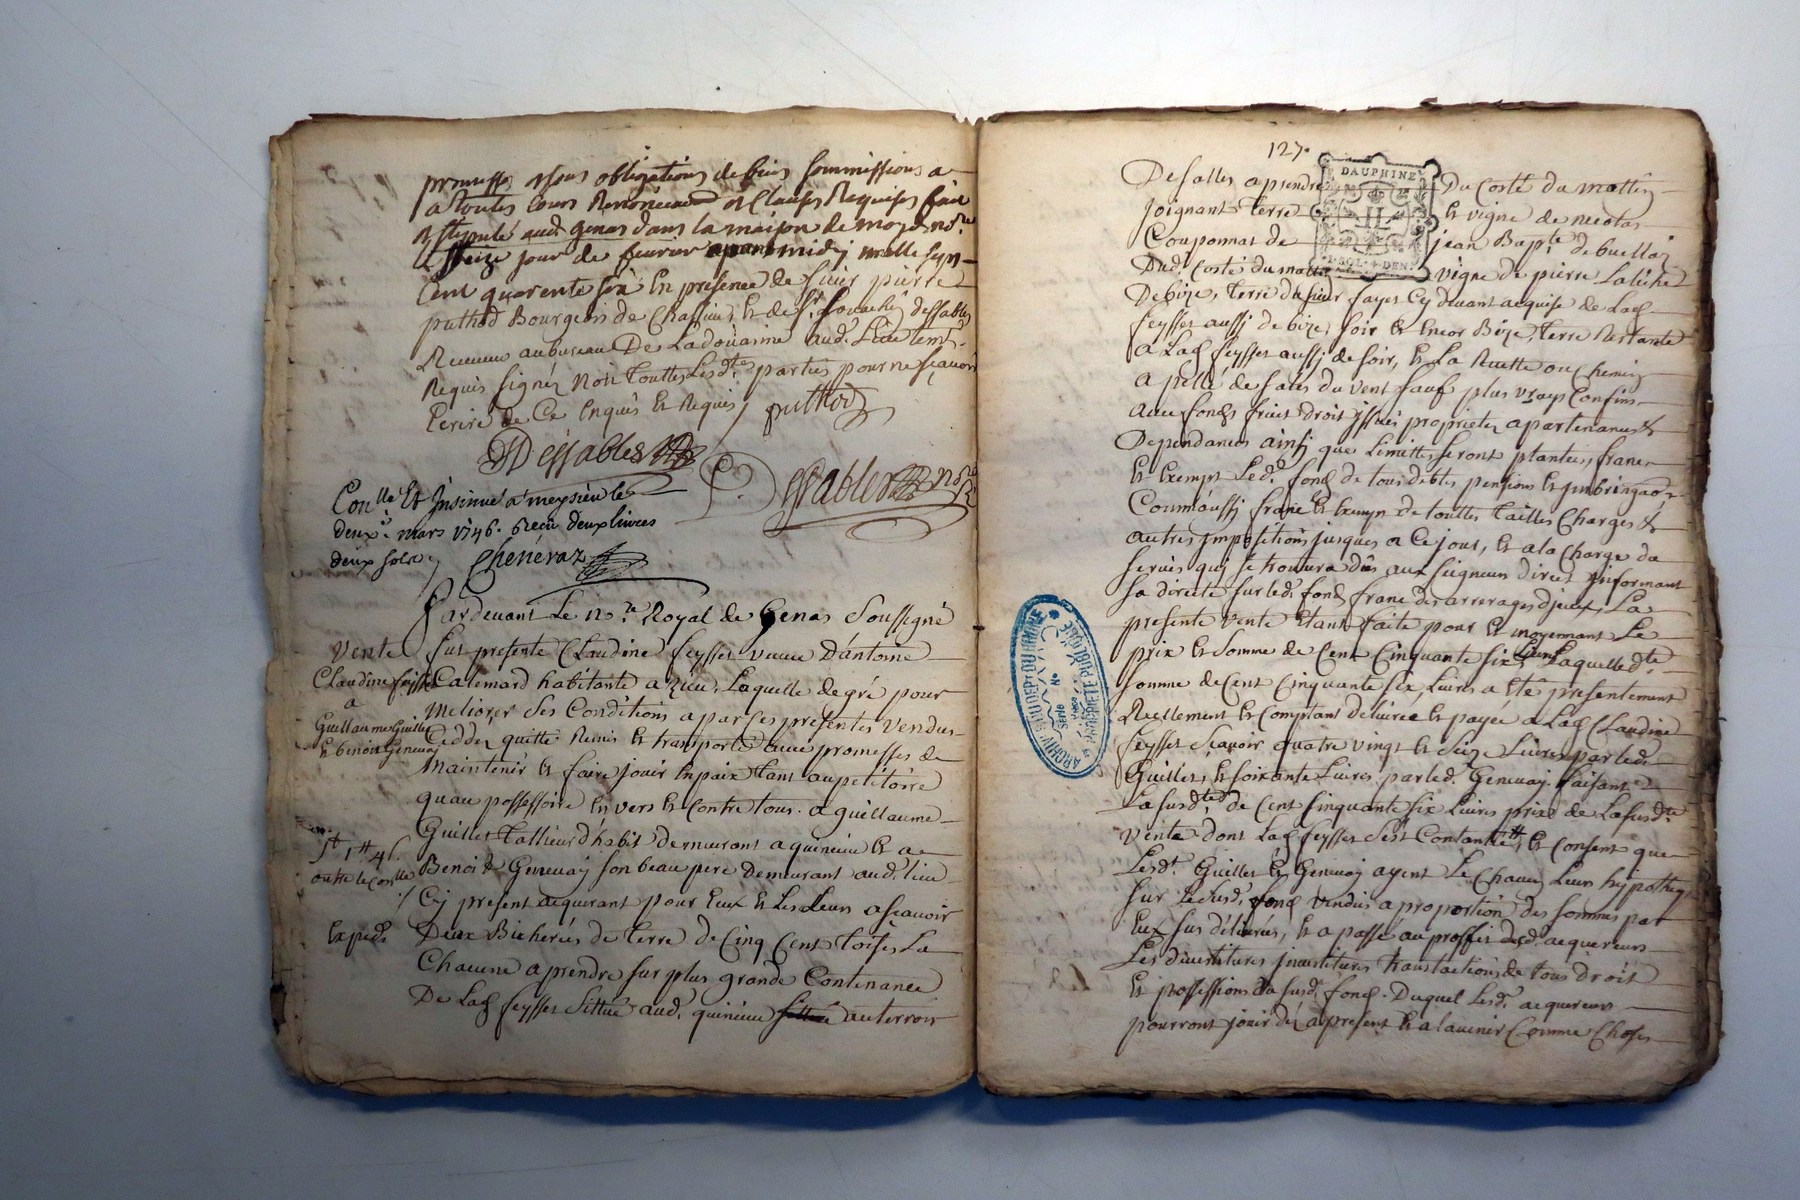 promesses et sous obligations de biens soummissions a
a toutes cours Renonciaõns et Clauses Requises fait
et stipulé aud. genas dans la maison de moyd. no.re
le seize jour de feuvrier apres midy mille sept
cent quarente six En présence de sieur pierre
puthod Bourgeois de Chassieu, et de Sr. dessables
Receveur au bureau De La doüanne aud. Lieu temt.
Requis signés Non Touttes Lesdtes parties pour ne sçavoir
Ecrire de Ce Enquis Et Requis, puthod
Dessables
Dessables no.re
Con.lle Et Insinué a meysieu le
deux.e mars 1746. Receu deux livres
deux sols,
Cheneraz
Pardevant Le no.re Royal de Genas Soussigné
Vente
fut presente Claudine feysset veuve D'antoine
Claudine feysset
Catemard habitante a Laquelle de gré pour
a
Guillaume Guillet
Meliorer Ses Conditions a par Ces presentes Vendus
Et benoit Genevay
Cedder quitté Remis Et transporté avec promesses de
Maintenir Et faire jouir En paix tant au petitoire
quau possessoire En vers Et Contre tous. a guillaume
Guillet tallieur d'habit demeurant a quincieu Et a
Benoit Genevay son beau pere demeurant aud. lieu
outre le con.lle
Cy present acquerant pour Eux Et Les Leurs asçavoir
Expedé
Deux Bicherées de terre de Cinq Cent toises La
Chacune a prendre sur plus grande Contenance
De Lad feysset Sittué aud. quincieu au terroir
127.
DAUPHINE
SOL. DEN.
De salles a prendre Du Costé du mattin
Joignant terre Et vigne de
Couponnat de jean Bapt.e de
Dud. Costé du mattin vigne de pierre
De bize, terre du sieur fayet Cy devant acquise de Lad
feysset aussy de bize, soir Et Encor Bize, terre Restante
a Lad feysset aussy de soir, Et La Ruette ou Chemin
apellé de sales du vent sauf plus vrays Confins
avec fonds fruits droit proprietez apartenances &
Dependances ainsy que Limittes seront plantées, franc
Et Exempt Led. fond de tous debtes pensions Et
Comm'aussy franc Et Exempt De touttes tailles Charges &
autres jmpositions jusques a Ce jour, Et a la Charge du
servis quy se trouvera dûs aux seigneurs direct jnformant
sa directe sur led. fond franc des arrerages d'jceux, La
presente vente Etant faite pour Et moyennant Le
prix Et somme de Cent Cinquante six Livres Laquelle dte
somme de Cent Cinquante six, Livres a Eté presentement
Reellement Et Comptant délivrée Et payée a Lad Claudine
feysset sçavoir quatre vingt Et Seize Livres par led.
Guillet, Et soixante Livres par led. Genevay. faisant
La susdte de Cent Cinquante six Livres prix de La susdte
vente dont Lad feysset sest Contantée, Et Consent que
Lesdt. Guillet Et Genevay ayent Le Chacun Leur hypotheq
sur Le susd. fond Vendus a proportion des sommes par
Eux sus délivrées, Et a passé au proffit desd. acquereurs
Les divestitures jnvestitures translactions de tous droit
Et possessions du susd. fond. Duquel Lesd. acquereurs
pourront jouir dez apresent Et alavenir Comme Choses
ARCHIVES DU DEP.T DU RHONE
Série
No
Pièce
PROPRIÉTÉ PUBLIQUE